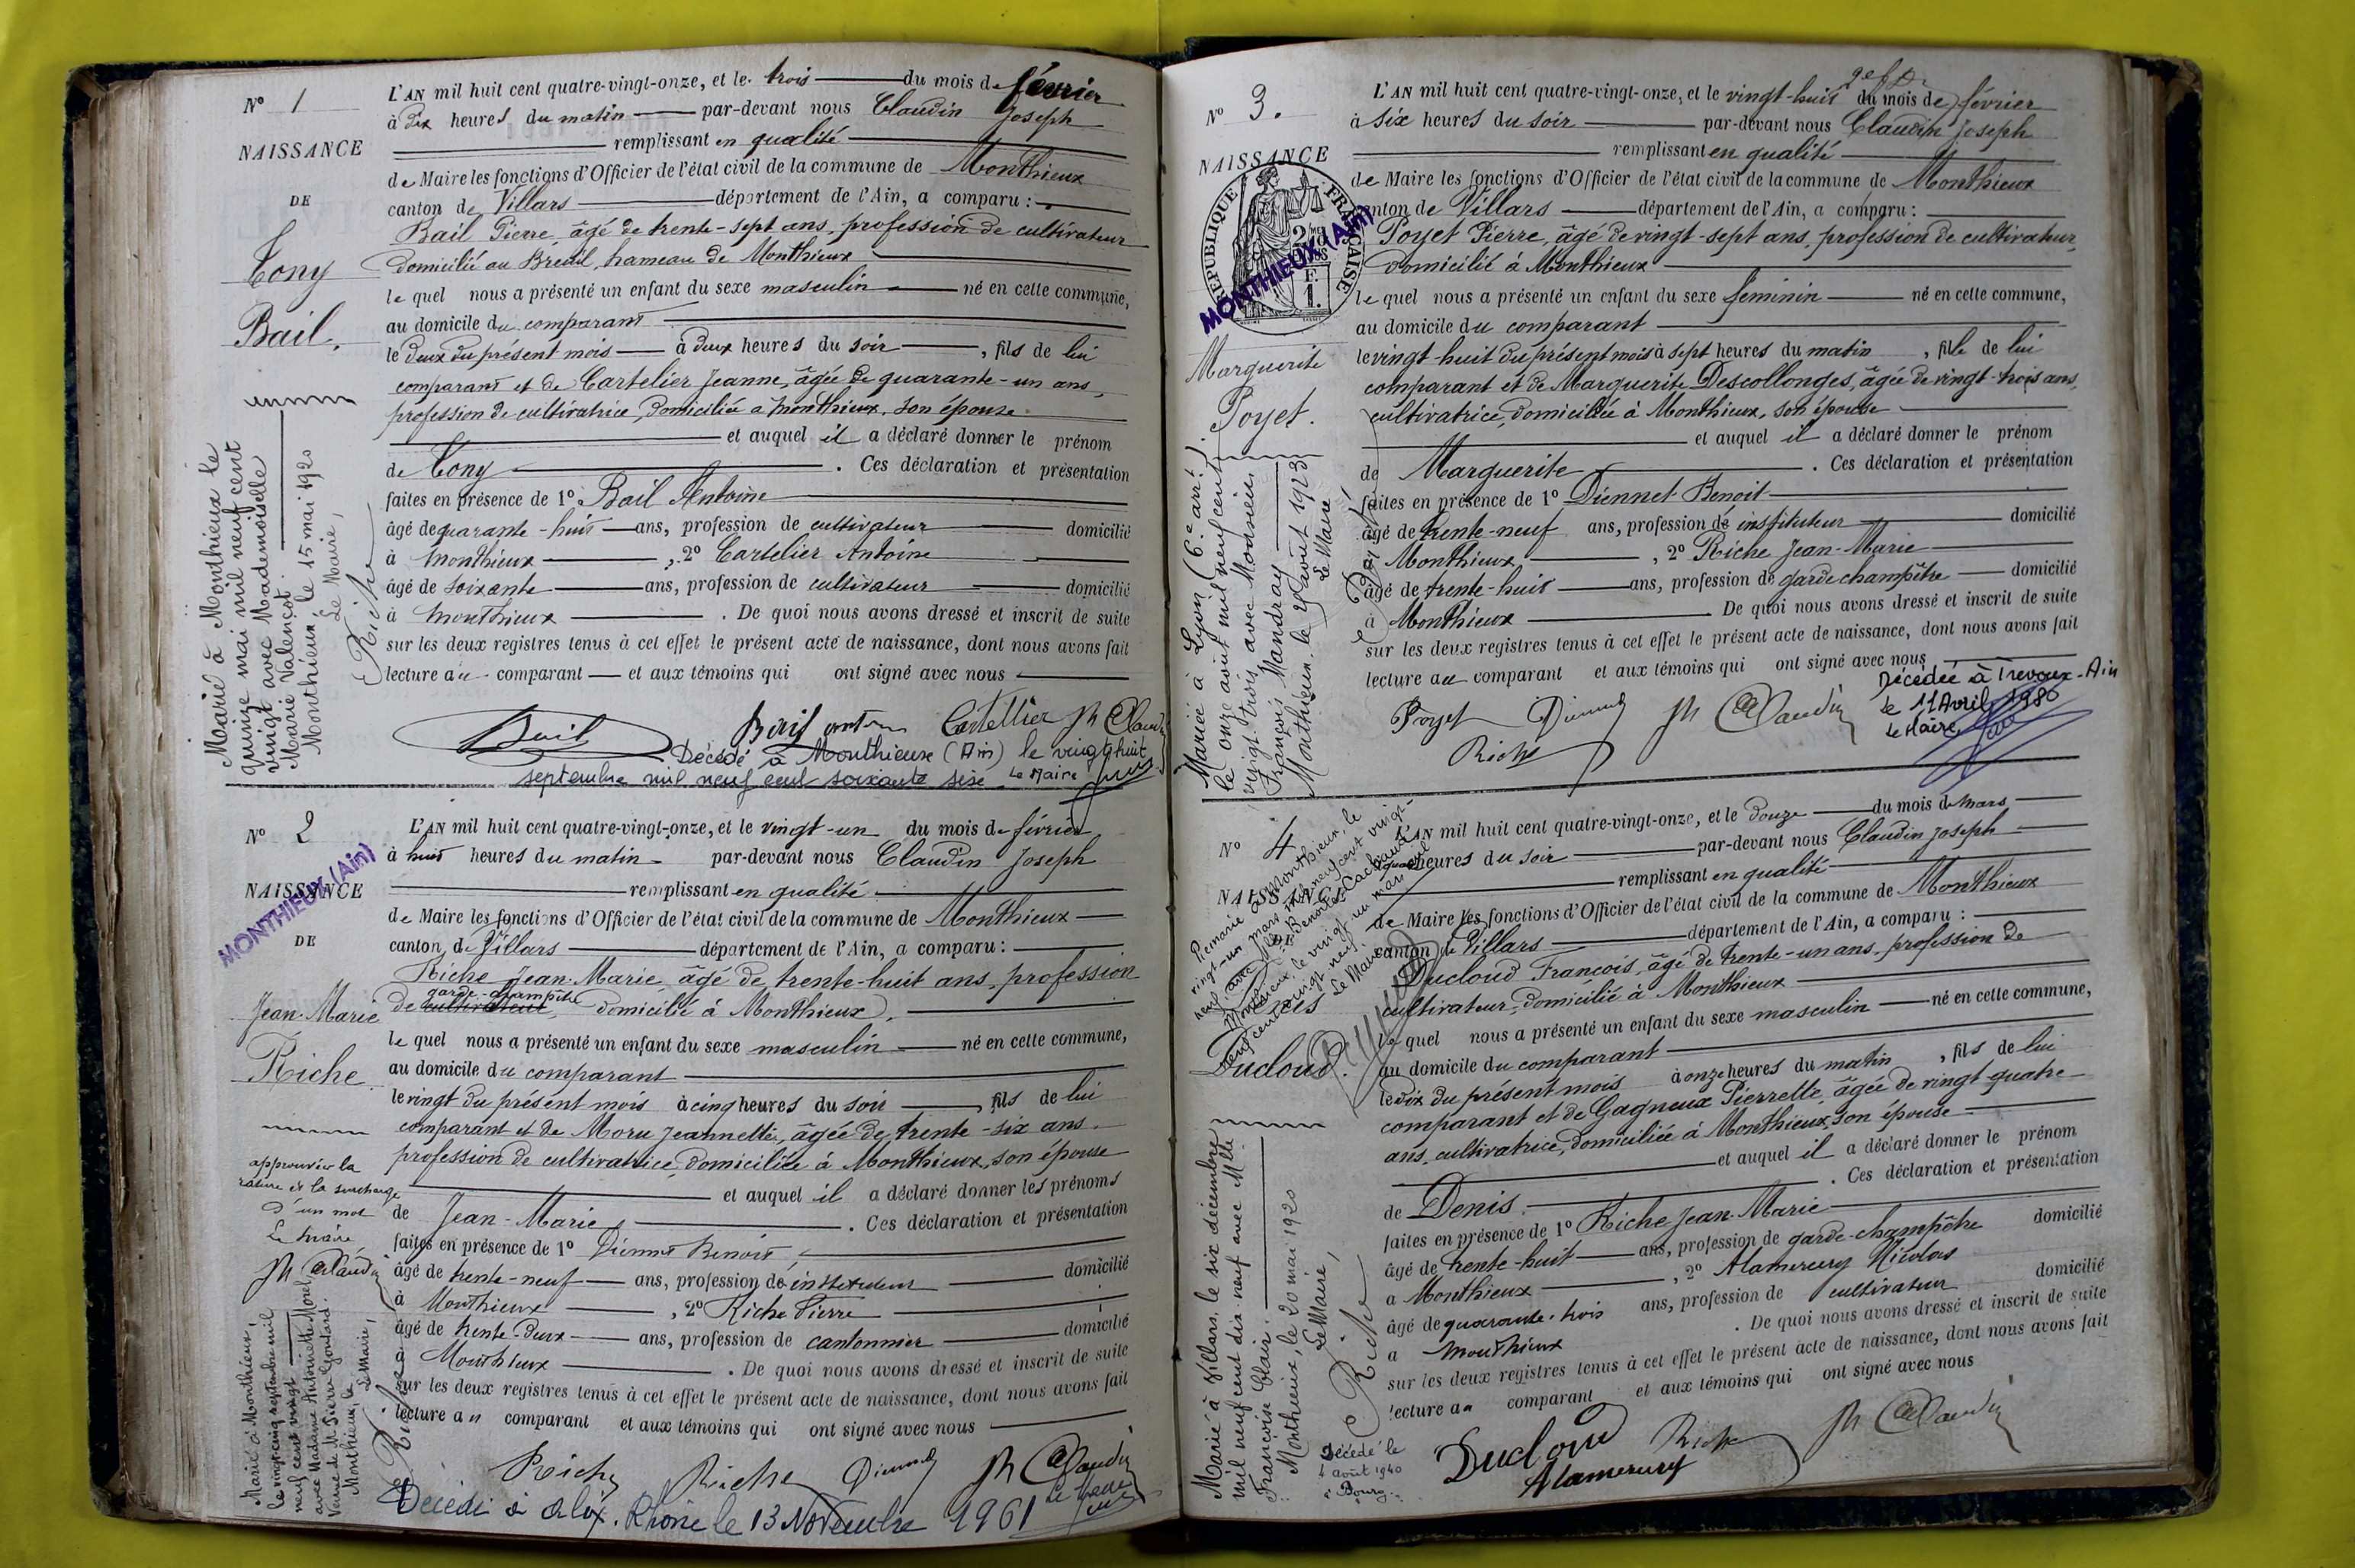 N° 1
NAISSANCE
DE
Tony
Bail.
L'AN mil huit cent quatre-vingt-onze, et le trois du mois de février
à dix heures du matin par-devant nous Claudin Joseph
remplissant en qualité
de Maire les fonctions d'Officier de l'état civil de la commune de Monthieux
canton de Villars département de l'Ain, a comparu :
Bail Pierre, âgé de trente-sept ans, profession de cultivateur
domicilié au Breuil, hameau de Monthieux
le quel nous a présenté un enfant du sexe masculin né en cette commune,
au domicile du comparant
le deux du présent mois à deux heures du soir, fils de lui
comparant et de Cartelier Jeanne, âgée de quarante-un ans,
profession de cultivatrice, domiciliée à Monthieux, son épouse
et auquel il a déclaré donner le prénom
de Tony. Ces déclaration et présentation
faites en présence de 1° Bail Antoine
âgé de quarante-huit ans, profession de cultivateur domicilié
à Monthieux, 2° Cartelier Antoine
âgé de soixante ans, profession de cultivateur domicilié
à Monthieux. De quoi nous avons dressé et inscrit de suite
sur les deux registres tenus à cet effet le présent acte de naissance, dont nous avons fait
lecture au comparant et aux témoins qui ont signé avec nous
Bail Bail Cartellier Claudin
Décédé à Monthieux (Ain) le vingt huit
septembre mil neuf cent soixante seize Le Maire
Marié à Monthieux le
quinze mai mil neuf cent
vingt avec Mademoiselle
Marie Valençot.
Monthieux, le 15 mai 1920
Le Maire,
Riche
N° 2
NAISSANCE
MONTHIEUX (Ain)
DE
Jean-Marie
Riche
approuvée la
rature et la surcharge
d'un mot
Le maire
Claudin
L'AN mil huit cent quatre-vingt-onze, et le vingt-un du mois de février
à huit heures du matin par-devant nous Claudin Joseph
remplissant en qualité
de Maire les fonctions d'Officier de l'état civil de la commune de Monthieux
canton de Villars département de l'Ain, a comparu :
Riche Jean-Marie, âgé de trente-huit ans, profession
garde-champêtre
de cultivateur, domicilié à Monthieux,
le quel nous a présenté un enfant du sexe masculin né en cette commune,
au domicile du comparant
le vingt du présent mois à cinq heures du soir, fils de lui
comparant et de Moru Jeannette, âgée de trente-six ans
profession de cultivatrice, domiciliée à Monthieux, son épouse
et auquel il a déclaré donner les prénoms
de Jean-Marie. Ces déclaration et présentation
faites en présence de 1° Diennet Benoit
âgé de trente-neuf ans, profession de instituteur domicilié
à Monthieux, 2° Riche Pierre
âgé de trente-deux ans, profession de cantonnier domicilié
à Monthieux. De quoi nous avons dressé et inscrit de suite
sur les deux registres tenus à cet effet le présent acte de naissance, dont nous avons fait
lecture au comparant et aux témoins qui ont signé avec nous
Riche Riche Diennet Claudin
Décédé à Alix. Rhône le 13 Novembre 1961 Le Maire
Marié à Monthieux,
le vingt-cinq septembre mil
neuf cent vingt
avec Madame Antoinette Morel
Veuve de M. Pierre Goutard.
Monthieux, le
Le Maire,
Riche
N° 3.
NAISSANCE
REPUBLIQUE FRANÇAISE
MONTHIEUX (Ain)
Marguerite
Poyet.
L'AN mil huit cent quatre-vingt-onze, et le vingt-huit du mois de février
à six heures du soir par-devant nous Claudin Joseph
remplissant en qualité
de Maire les fonctions d'Officier de l'état civil de la commune de Monthieux
canton de Villars département de l'Ain, a comparu :
Poyet Pierre, âgé de vingt-sept ans, profession de cultivateur,
domicilié à Monthieux
le quel nous a présenté un enfant du sexe féminin né en cette commune,
au domicile du comparant
le vingt-huit du présent mois à sept heures du matin, fille de lui
comparant et de Marguerite Descollonges, âgée de vingt-trois ans,
cultivatrice, domiciliée à Monthieux, son épouse
et auquel il a déclaré donner le prénom
de Marguerite. Ces déclaration et présentation
faites en présence de 1° Diennet Benoit
âgé de trente-neuf ans, profession de instituteur domicilié
à Monthieux, 2° Riche Jean-Marie
âgé de trente-huit ans, profession de garde champêtre domicilié
à Monthieux. De quoi nous avons dressé et inscrit de suite
sur les deux registres tenus à cet effet le présent acte de naissance, dont nous avons fait
lecture au comparant et aux témoins qui ont signé avec nous
Poyet Diennet Claudin
Riche
Décédée à Trévoux-Ain
le 11 Avril 1980
Le Maire
Mariée à Lyon (6e arrt)
le onze août mil neuf cent
vingt-trois avec Monsieur
François Mandray
Monthieux, le août 1923
Le Maire
N° 4
NAISSANCE
Denis
Ducloud.
L'AN mil huit cent quatre-vingt-onze, et le douze du mois de mars
à quatre heures du soir par-devant nous Claudin Joseph
remplissant en qualité
de Maire les fonctions d'Officier de l'état civil de la commune de Monthieux
canton de Villars département de l'Ain, a comparu :
Ducloud François, âgé de trente-un ans, profession de
cultivateur, domicilié à Monthieux
le quel nous a présenté un enfant du sexe masculin né en cette commune,
au domicile du comparant
le dix du présent mois à onze heures du matin, fils de lui
comparant et de Gagneux Pierrette, âgée de vingt-quatre
ans, cultivatrice, domiciliée à Monthieux, son épouse
et auquel il a déclaré donner le prénom
de Denis. Ces déclaration et présentation
faites en présence de 1° Riche Jean-Marie
âgé de trente-huit ans, profession de garde-champêtre domicilié
à Monthieux, 2° Alamercery Nicolas
âgé de quarante-trois ans, profession de cultivateur domicilié
à Monthieux. De quoi nous avons dressé et inscrit de suite
sur les deux registres tenus à cet effet le présent acte de naissance, dont nous avons fait
lecture au comparant et aux témoins qui ont signé avec nous
Ducloud Riche Claudin
Alamercery
Remarié à Monthieux, le
vingt-un mars mil neuf cent vingt-
neuf, avec Benoite Cachaud
Monthieux, le vingt-un mars mil
neuf cent vingt-neuf
Le Maire
Marié à Villars, le six décembre
mil neuf cent dix-neuf avec Mlle
Françoise Clair.
Monthieux, le 20 mai 1920
Le Maire,
Riche
Décédé le
4 août 1940
à Bourg